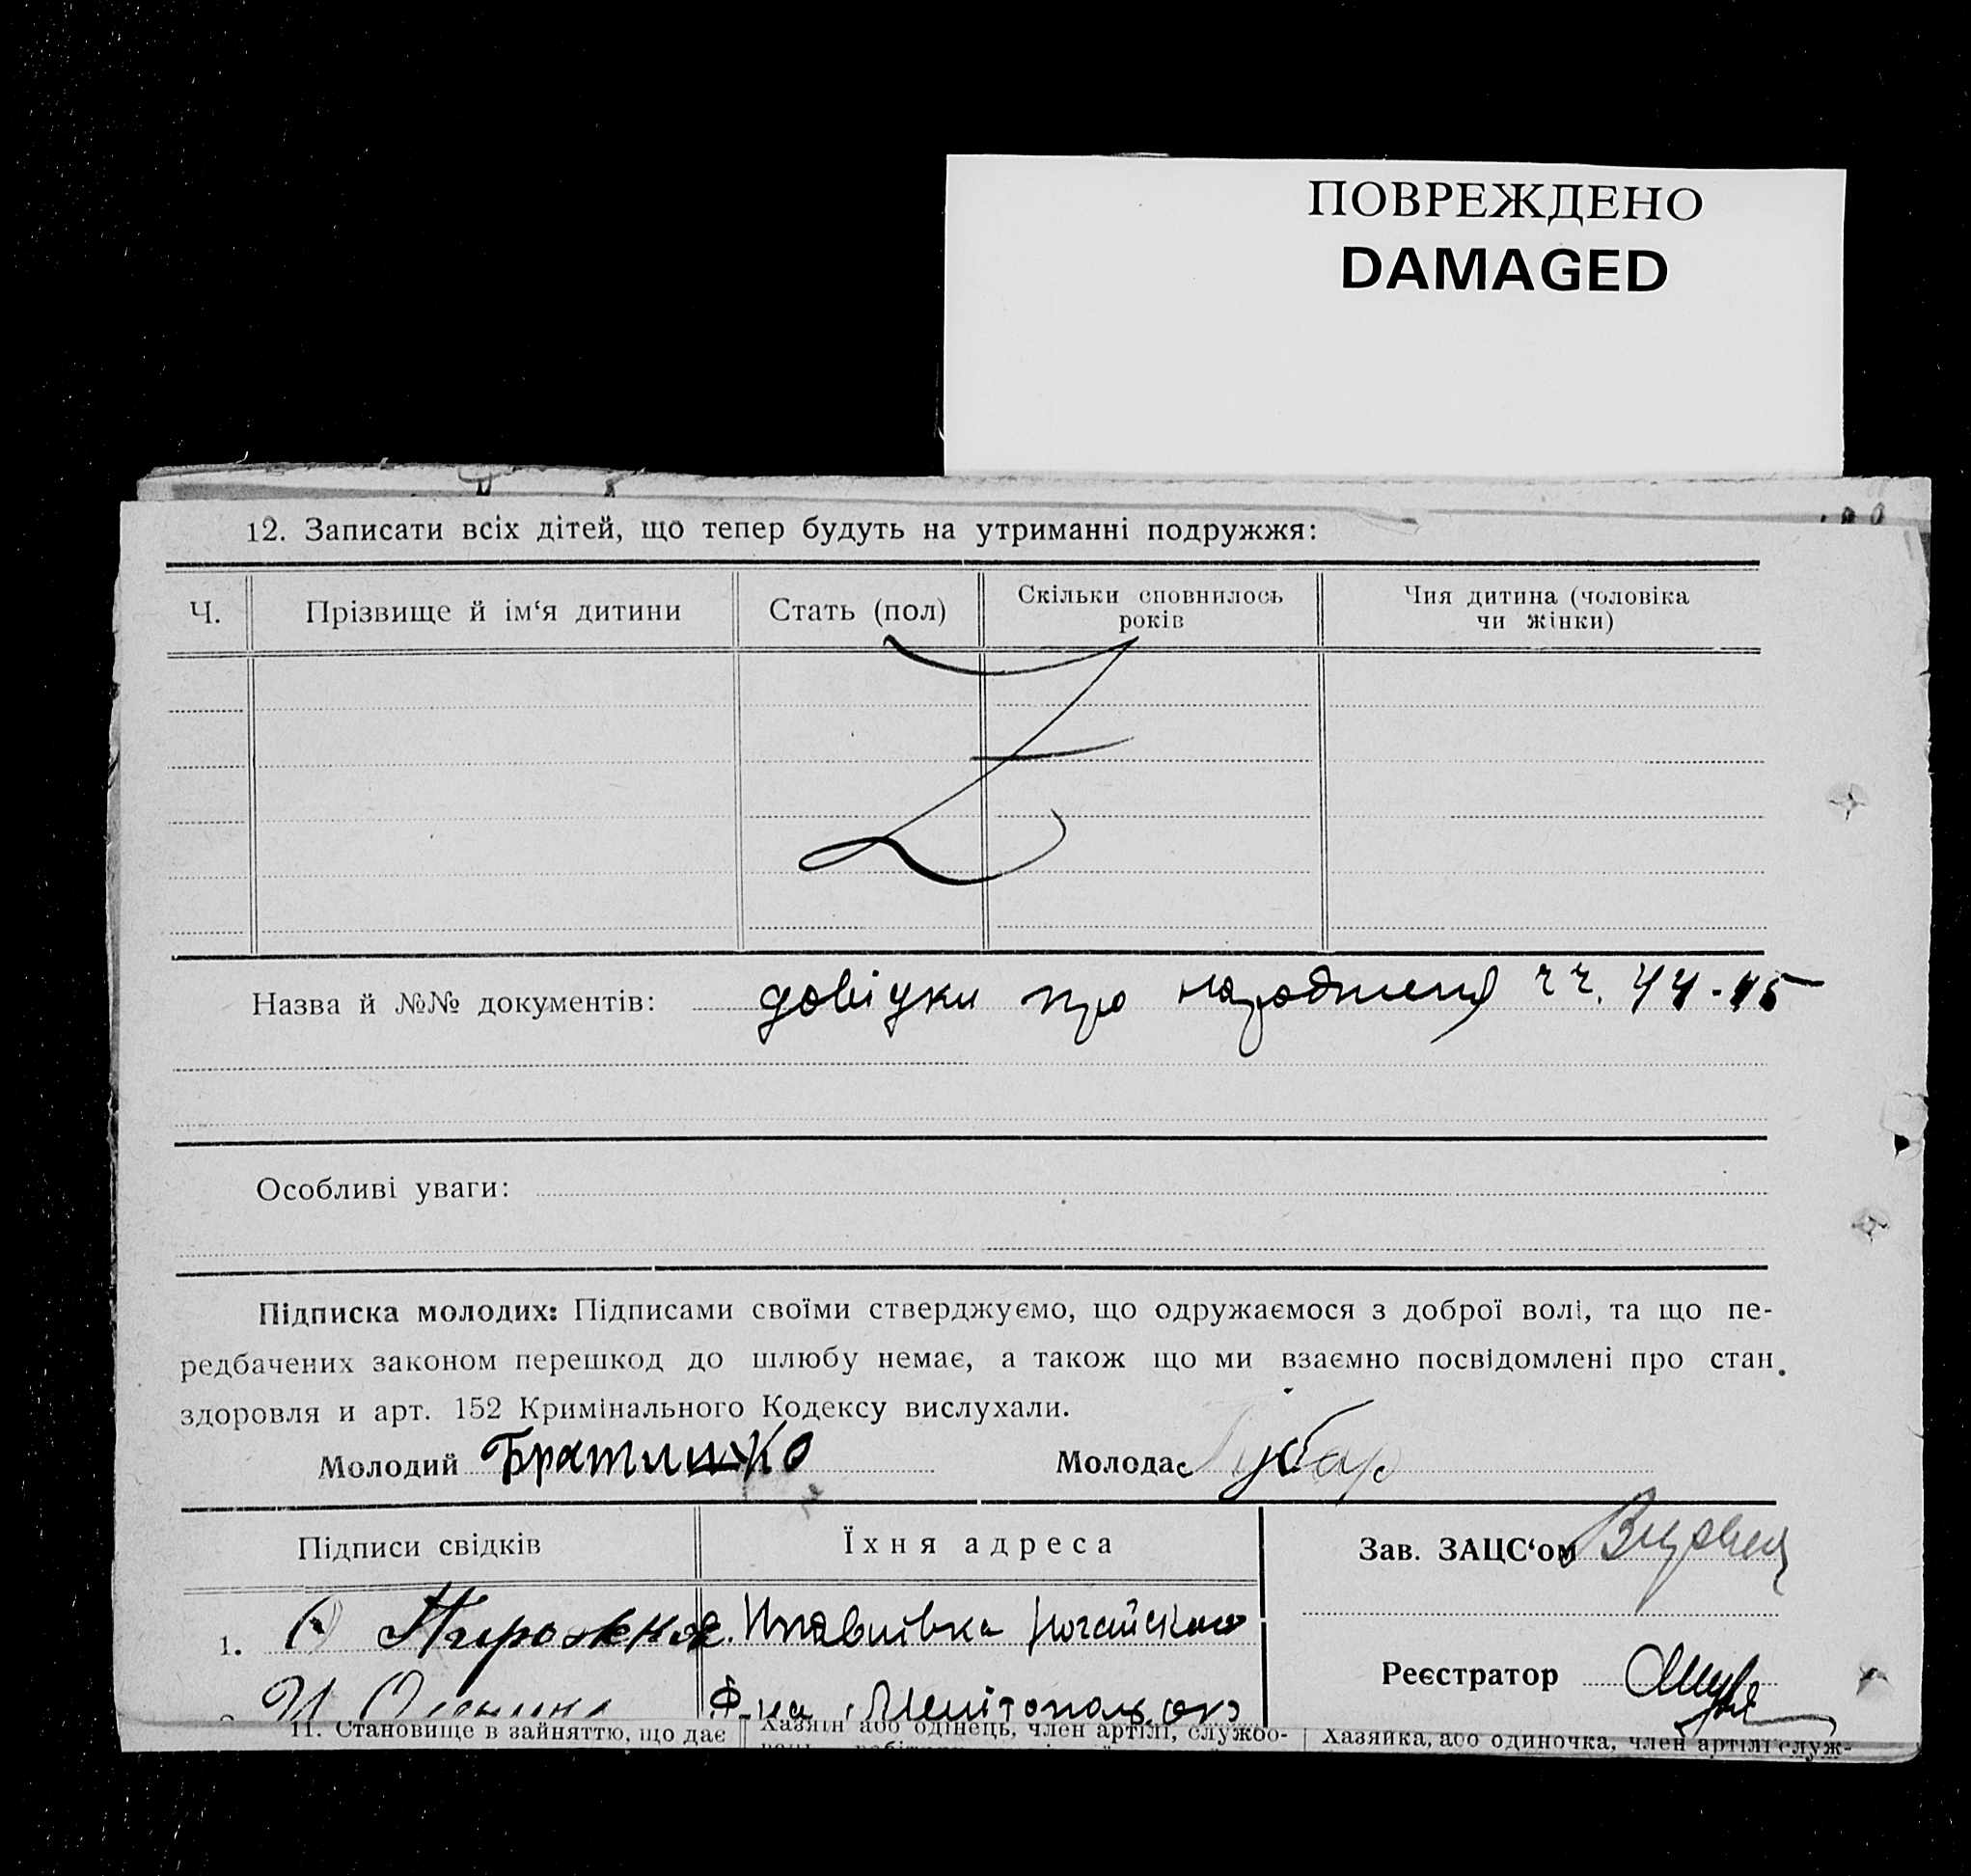 ПОВРЕЖДЕНО
DAMAGED
12. Записати всіх дітей, що тепер будуть на утриманні подружжя:
Ч.
Прізвище й ім‘я дитини
Стать (пол)
Скільки сповнилось
років
Чия дитина (чоловіка
чи жінки)
Назва й №№ документів: довідки про народження чч. 44-45
Особливі уваги:
Підписка молодих: Підписами своїми стверджуємо, що одружаємося з доброї волі, та що пе-
редбачених законом перешкод до шлюбу немає, а також що ми взаємно посвідомлені про стан
здоровля и арт. 152 Кримінального Кодексу вислухали.
Молодий Братишко
Молода Губар
Підписи свідків
Їхня адреса
Зав. ЗАЦС‘ом
1.
Реєстратор
11. Становище в зайняттю, що дає
Хазяїн або одінець, член артілі, службо-
Хазяйка, або одиночка, член артілі служ-